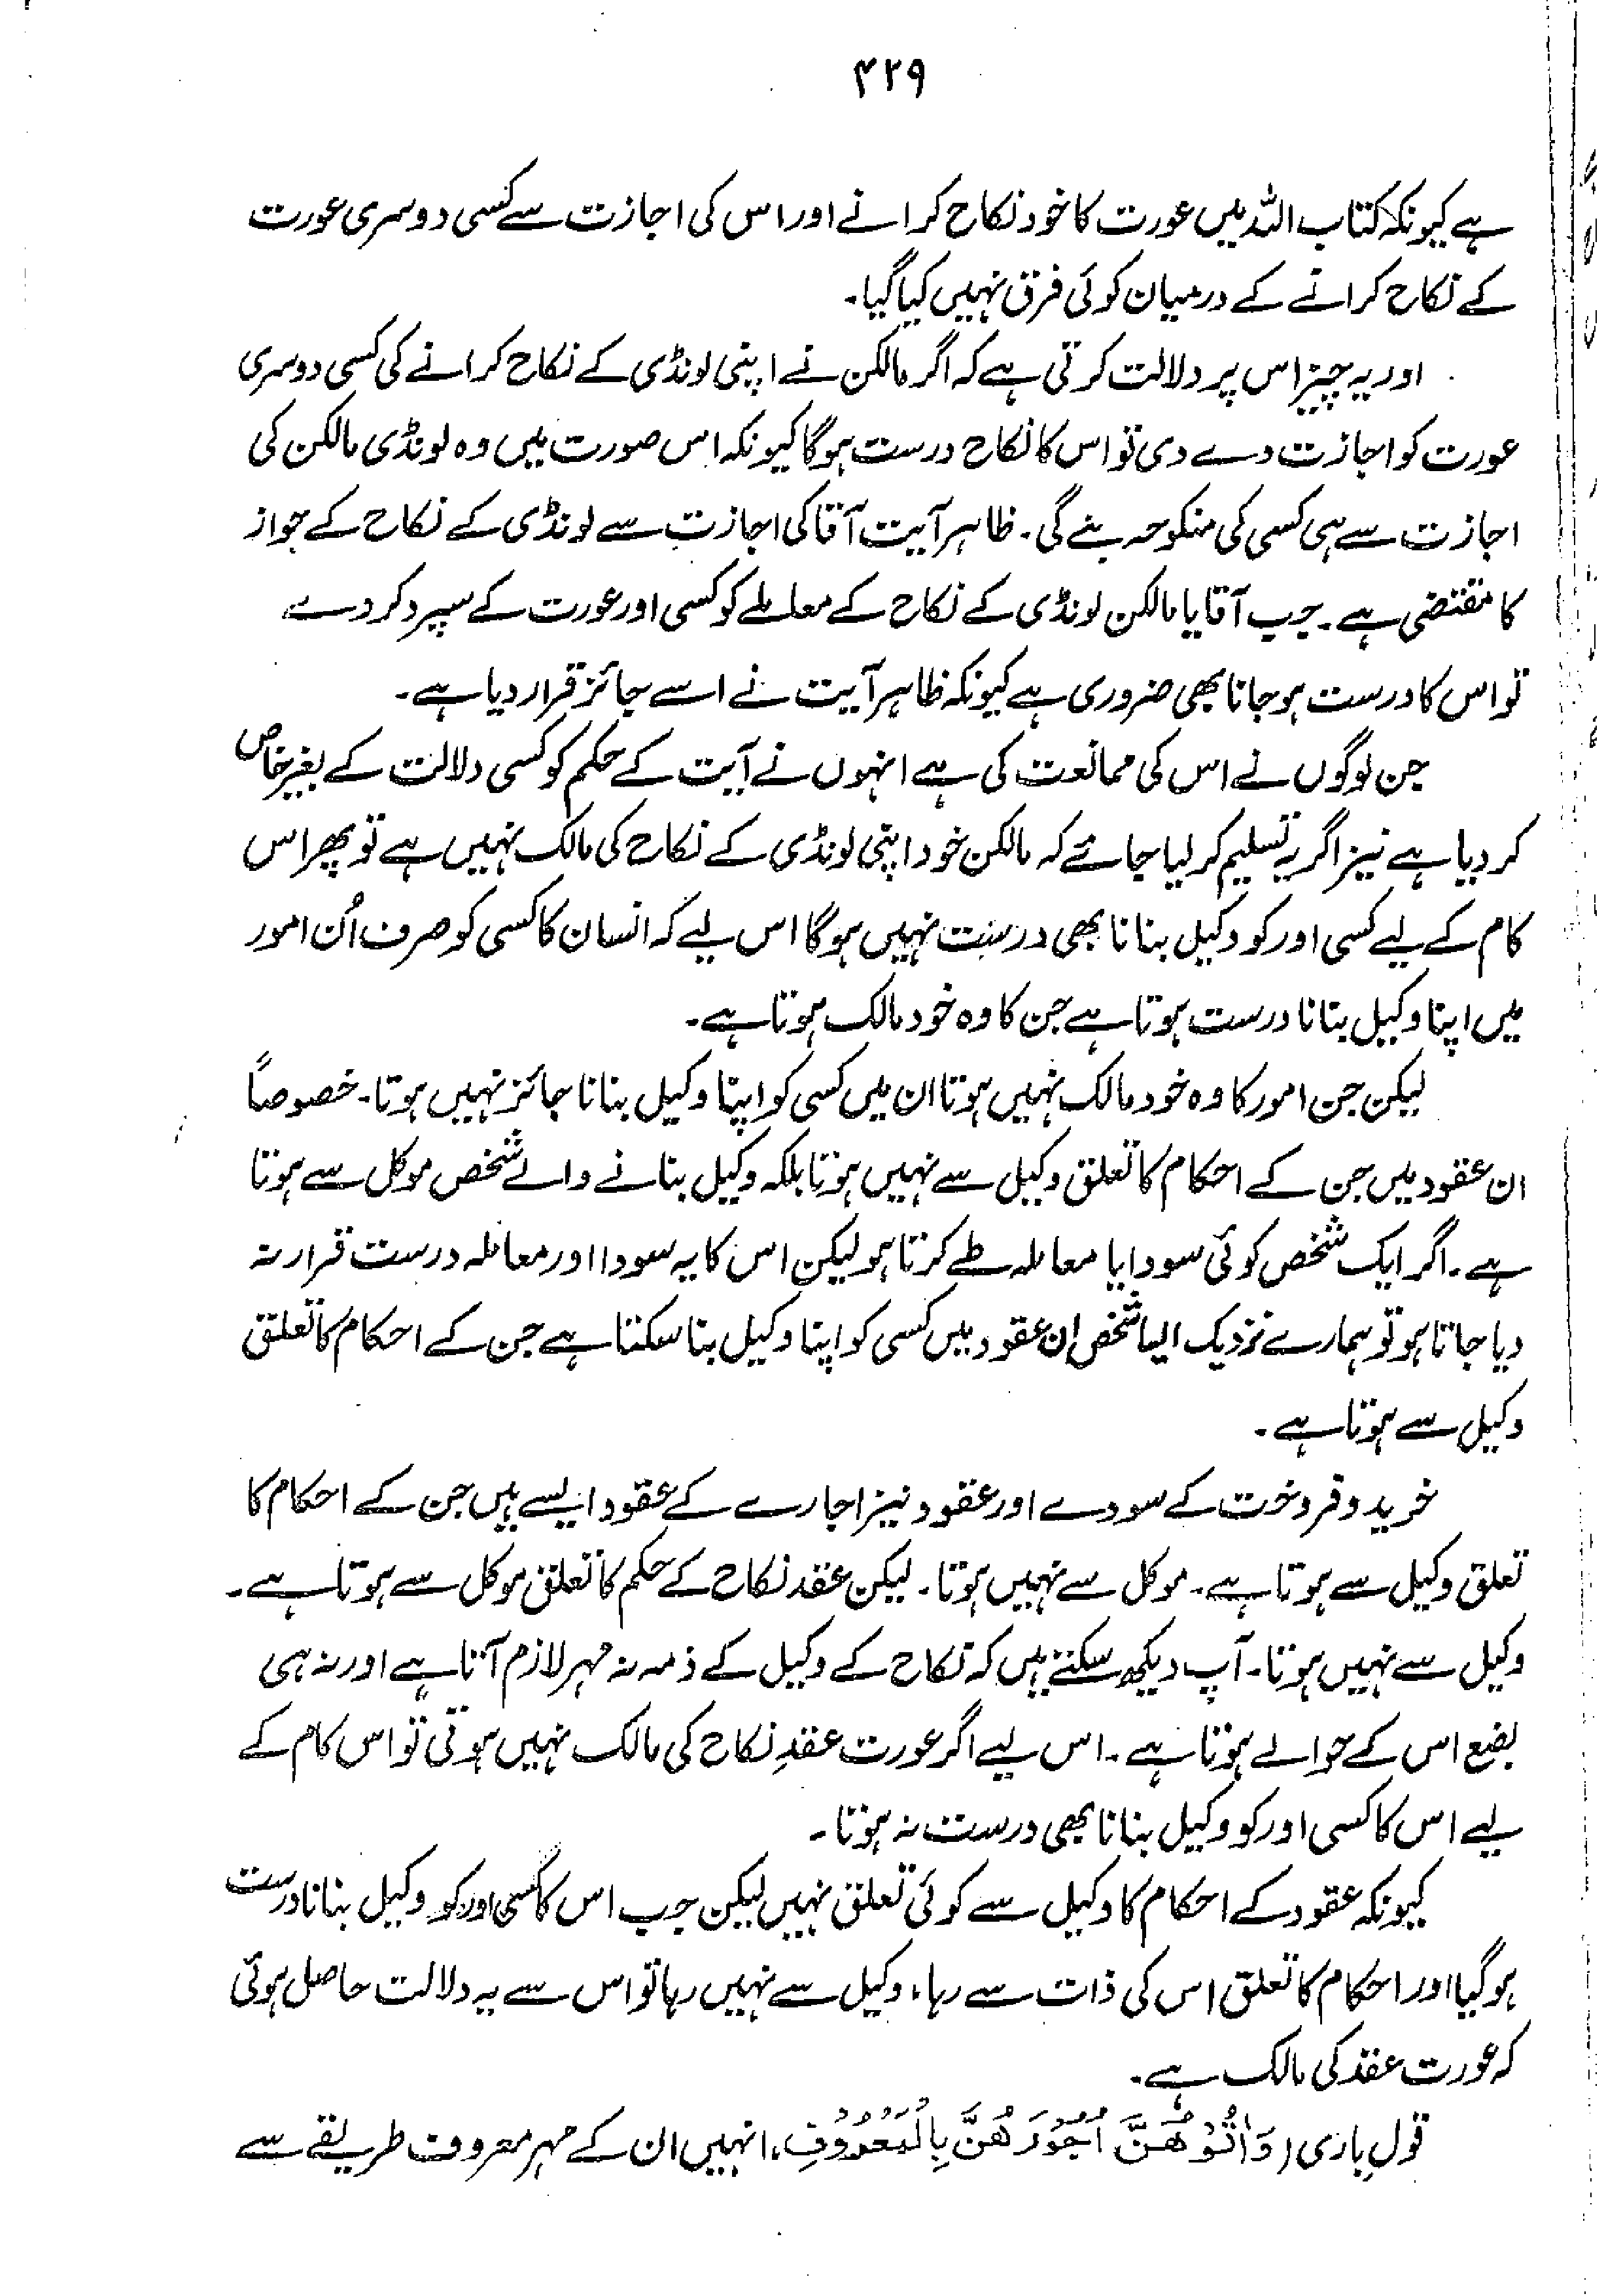 ۴۲۹
ہے کیونکہ کتاب اللہ میں عورت کا خود نکاح کرانے اور اس کی اجازت سے کسی دوسری عورت
کے نکاح کرانے کے درمیان کوئی فرق نہیں کیا گیا۔
اور یہ چیز اس پر دلالت کرتی ہے کہ اگر مالکن نے اپنی لونڈی کے نکاح کرانے کی کسی دوسری
عورت کو اجازت دے دی تو اس کا نکاح درست ہوگا کیونکہ اس صورت میں وہ لونڈی مالکن کی
اجازت سے ہی کسی کی منکوحہ بنے گی۔ ظاہر آیت آقا کی اجازت سے لونڈی کے نکاح کے جواز
کا مقتضی ہے۔ جب آقا یا مالکن لونڈی کے نکاح کے معاملے کو کسی اور عورت کے سپرد کر دے
تو اس کا درست ہو جانا بھی ضروری ہے کیونکہ ظاہر آیت نے اسے جائز قرار دیا ہے۔
جن لوگوں نے اس کی ممانعت کی ہے انہوں نے آیت کے حکم کو کسی دلالت کے بغیر خاص
کر دیا ہے نیز اگر یہ تسلیم کر لیا جائے کہ مالکن خود اپنی لونڈی کے نکاح کی مالک نہیں ہے تو پھر اس
کام کے لیے کسی اور کو وکیل بنانا بھی درست نہیں ہوگا اس لیے کہ انسان کا کسی کو صرف اُن امور
میں اپنا وکیل بنانا درست ہوتا ہے جن کا وہ خود مالک ہوتا ہے۔
لیکن جن امور کا وہ خود مالک نہیں ہوتا ان میں کسی کو اپنا وکیل بنانا جائز نہیں ہوتا۔ خصوصاً
ان عقود میں جن کے احکام کا تعلق وکیل سے نہیں ہوتا بلکہ وکیل بنانے والے شخص موکل سے ہوتا
ہے۔ اگر ایک شخص کوئی سودا یا معاملہ طے کرتا ہو لیکن اس کا یہ سودا اور معاملہ درست قرار نہ
دیا جاتا ہو تو ہمارے نزدیک ایسا شخص ان عقود میں کسی کو اپنا وکیل بنا سکتا ہے جن کے احکام کا تعلق
وکیل سے ہوتا ہے۔
خرید و فروخت کے سودے اور عقود نیز اجارے کے عقود ایسے ہیں جن کے احکام کا
تعلق وکیل سے ہوتا ہے۔ موکل سے نہیں ہوتا۔ لیکن عقد نکاح کے حکم کا تعلق موکل سے ہوتا ہے۔
وکیل سے نہیں ہوتا۔ آپ دیکھ سکتے ہیں کہ نکاح کے وکیل کے ذمہ نہ مہر لازم آتا ہے اور نہ ہی
بضع اس کے حوالے ہوتا ہے۔ اس لیے اگر عورت عقدِ نکاح کی مالک نہیں ہوتی تو اس کام کے
لیے اس کا کسی اور کو وکیل بنانا بھی درست نہ ہوتا۔
کیونکہ عقود کے احکام کا وکیل سے کوئی تعلق نہیں لیکن جب اس کا کسی اور کو وکیل بنانا درست
ہوگیا اور احکام کا تعلق اس کی ذات سے رہا، وکیل سے نہیں رہا تو اس سے یہ دلالت حاصل ہوئی
کہ عورت عقد کی مالک ہے۔
قولِ باری (وَاٰتُوْھُنَّ اُجُوْرَھُنَّ بِالْمَعْرُوْفِ، انہیں ان کے مہر معروف طریقے سے